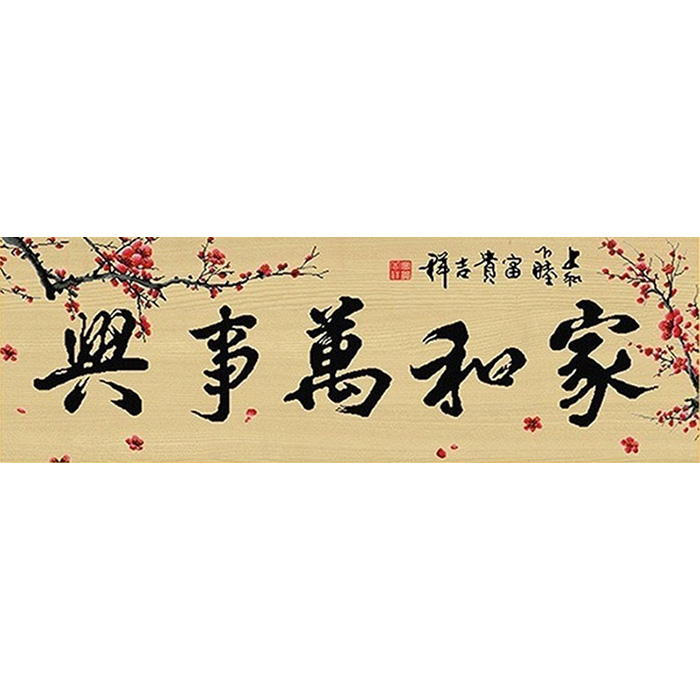 上和下睦富貴吉祥
家和萬事興